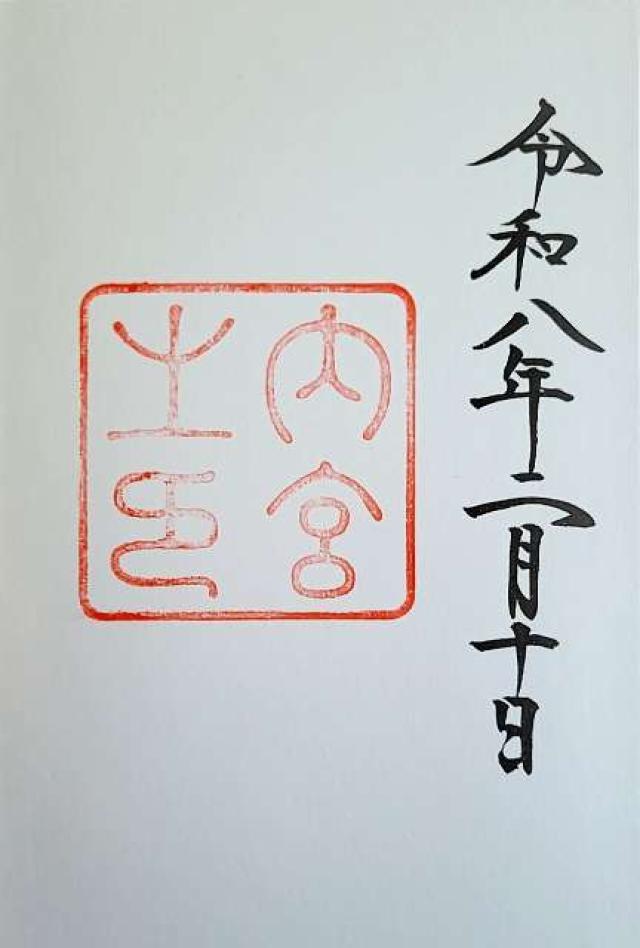 令和八年二月十日
内宮
之印